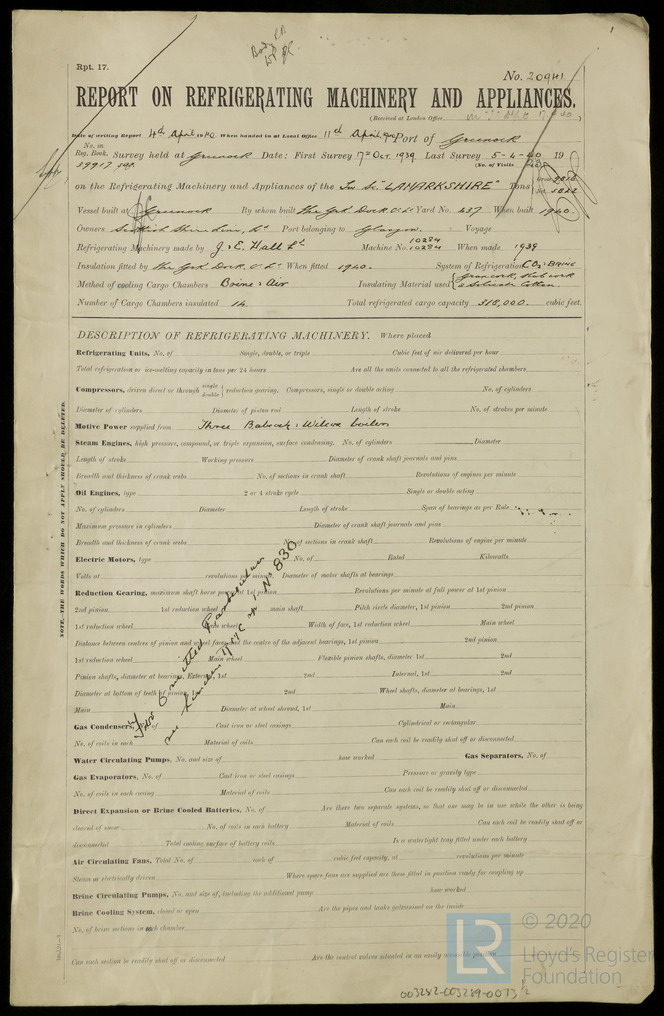 Rpt. 17.
No. 20941
REPORT ON REFRIGERATING MACHINERY AND APPLIANCES.
(Received at London Office
Date of writing Report 4th April 1940 When handed in at Local Office 11th April 1940 Port of Greenock
No. in Reg. Book. Survey held at Greenock Date: First Survey 17th Oct. 1939 Last Survey 5-4-40 19
39917 (No. of Visits
on the Refrigerating Machinery and Appliances of the "LANARKSHIRE" Tons
Vessel built at Greenock By whom built The Grk Dock Co Ld Yard No. 437 When built 1940.
Owners Scottish Shire Line, Ld Port belonging to Glasgow. Voyage
Refrigerating Machinery made by J & E. Hall Ld Machine No. 10284 When made 1939
Insulation fitted by The Grk Dock Co Ld When fitted 1940. System of Refrigeration CO2 & BRINE
Method of cooling Cargo Chambers Brine & Air Insulating Material used
Number of Cargo Chambers insulated 14 Total refrigerated cargo capacity 318,000. cubic feet.
DESCRIPTION OF REFRIGERATING MACHINERY. Where placed
Refrigerating Units, No. of Single, double, or triple Cubic feet of air delivered per hour
Total refrigeration or ice-melting capacity in tons per 24 hours Are all the units connected to all the refrigerated chambers
Compressors, driven direct or through single double reduction gearing. Compressors, single or double acting No. of cylinders
Diameter of cylinders Diameter of piston rod Length of stroke No. of strokes per minute
Motive Power supplied from Three Babcock & Wilcox boilers
Steam Engines, high pressure, compound, or triple expansion, surface condensing. No. of cylinders Diameter
Length of stroke Working pressure Diameter of crank shaft journals and pins
Breadth and thickness of crank webs No. of sections in crank shaft Revolutions of engines per minute
Oil Engines, type 2 or 4 stroke cycle Single or double acting
No. of cylinders Diameter Length of stroke Span of bearings as per Rule
Maximum pressure in cylinders Diameter of crank shaft journals and pins
Breadth and thickness of crank webs No. of sections in crank shaft Revolutions of engine per minute
Electric Motors, type No. of Rated Kilowatts
Volts at revolutions per minute. Diameter of motor shafts at bearings
Reduction Gearing, maximum shaft horse power at 1st pinion Revolutions per minute at full power at 1st pinion
2nd pinion 1st reduction wheel main shaft Pitch circle diameter, 1st pinion 2nd pinion
1st reduction wheel Main wheel Width of face, 1st reduction wheel Main wheel
Distance between centres of pinion and wheel faces and the centre of the adjacent bearings, 1st pinion 2nd pinion
1st reduction wheel Main wheel Flexible pinion shafts, diameter 1st 2nd
Pinion shafts, diameter at bearings, External, 1st 2nd Internal, 1st 2nd
Diameter at bottom of teeth of pinion, 1st 2nd Wheel shafts, diameter at bearings, 1st
Main Diameter at wheel shroud, 1st Main
For Omitted Particulars
see London Rpt
No 830
Gas Condensers, No. of Cast iron or steel casings Cylindrical or rectangular
No. of coils in each Material of coils Can each coil be readily shut off or disconnected
Water Circulating Pumps, No. and size of how worked Gas Separators, No. of
Gas Evaporators, No. of Cast iron or steel casings Pressure or gravity type
No. of coils in each casing Material of coils Can each coil be readily shut off or disconnected
Direct Expansion or Brine Cooled Batteries, No. of Are there two separate systems, so that one may be in use while the other is being
cleared of snow No. of coils in each battery Material of coils Can each coil be readily shut off or
disconnected Total cooling surface of battery coils Is a watertight tray fitted under each battery
Air Circulating Fans, Total No. of each of cubic feet capacity, at revolutions per minute
Steam or electrically driven Where spare fans are supplied are these fitted in position ready for coupling up
Brine Circulating Pumps, No. and size of, including the additional pump how worked
Brine Cooling System, closed or open Are the pipes and tanks galvanised on the inside
No. of brine sections in each chamber
Can each section be readily shut off or disconnected Are the control valves situated in an easily accessible position
NOTE.—THE WORDS WHICH DO NOT APPLY SHOULD BE DELETED.
LR
© 2020
Lloyd's Register
Foundation
003282-003289-0073 1/2